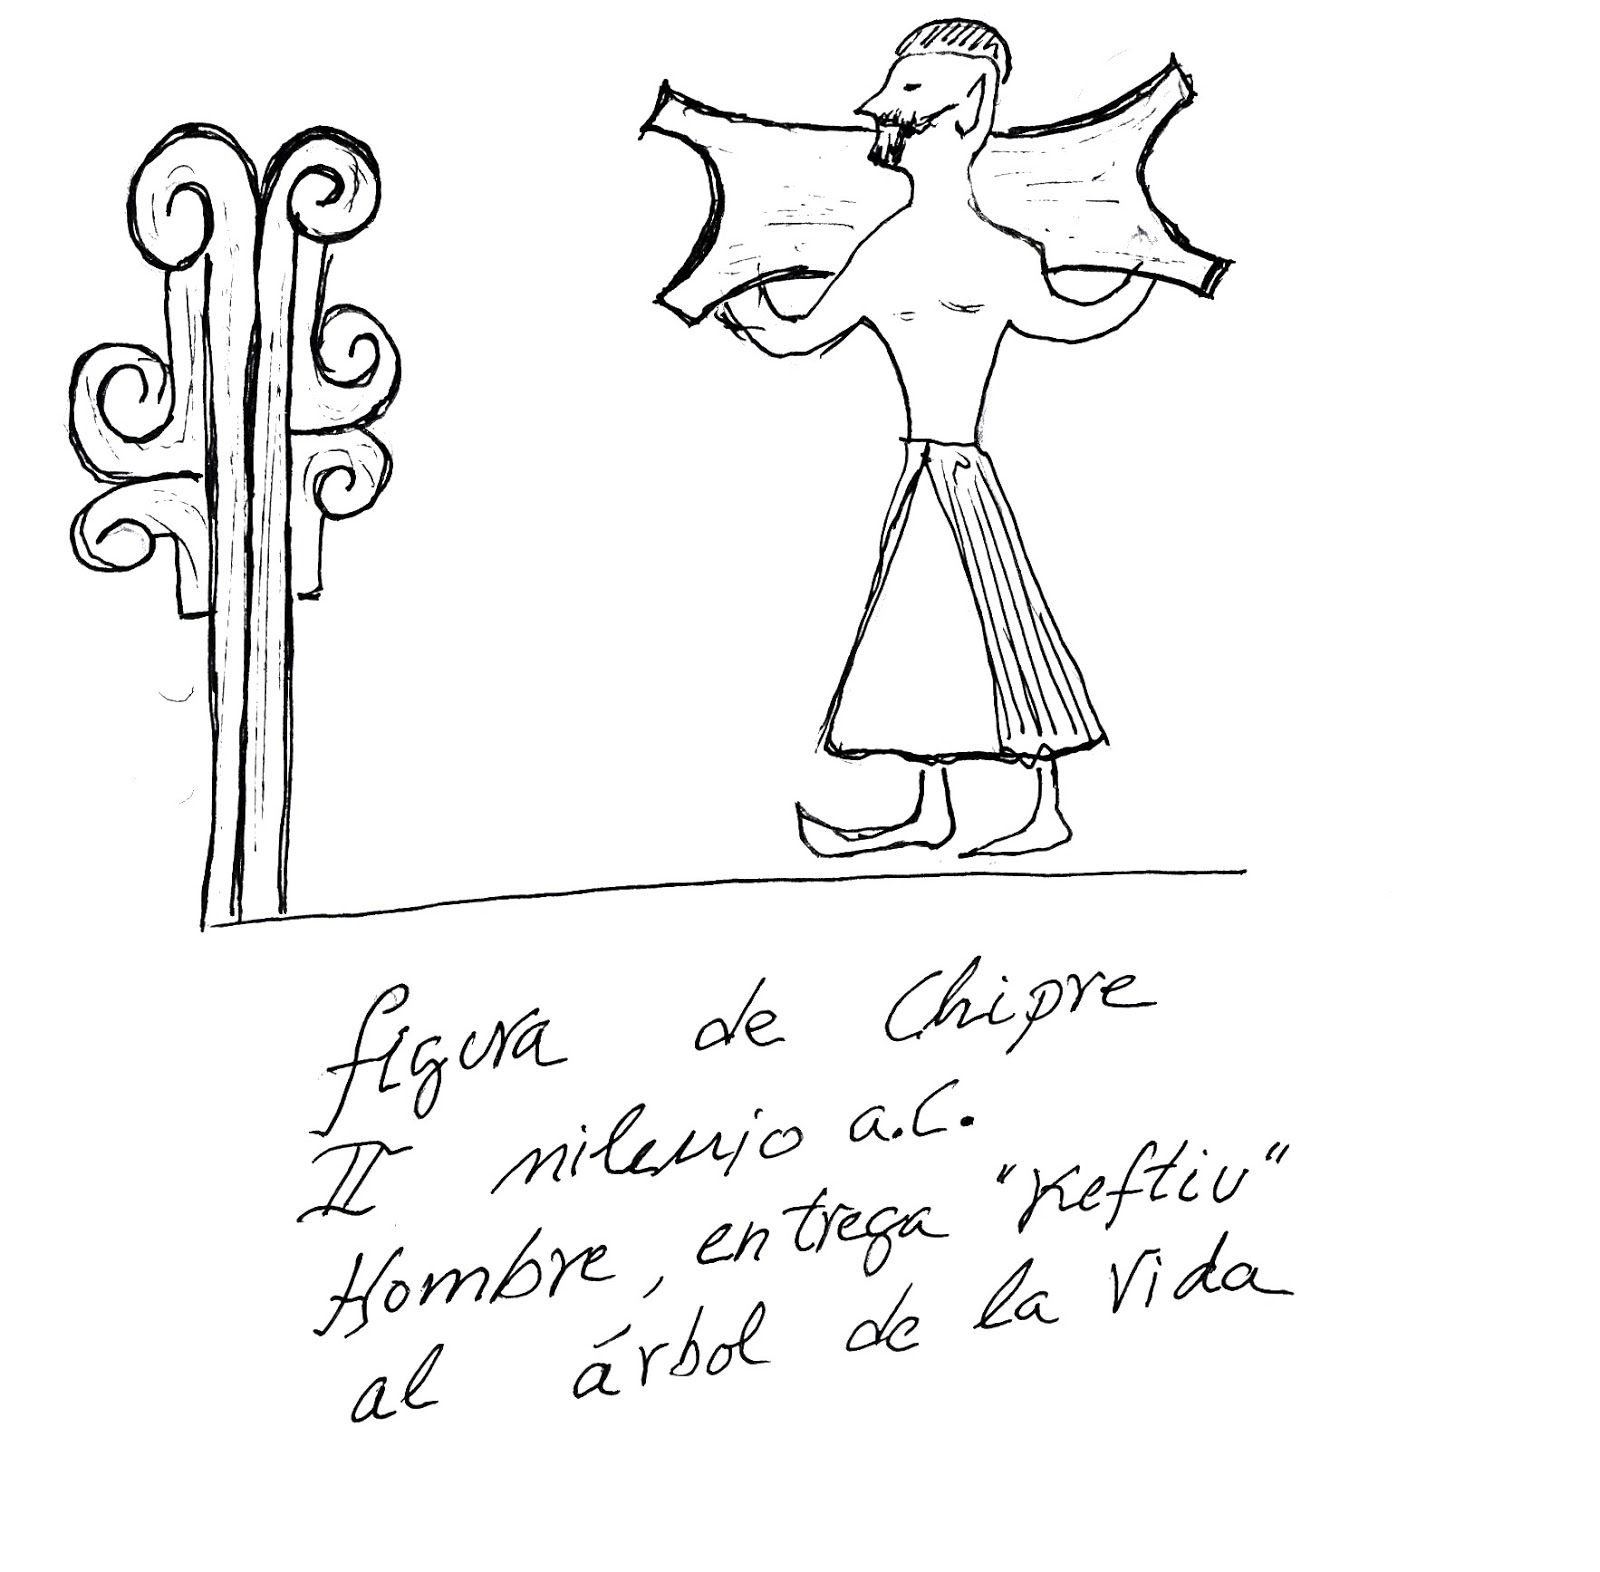 figura de Chipre
II milenio a.C.
Hombre, entrega "Keftiu"
al árbol de la Vida